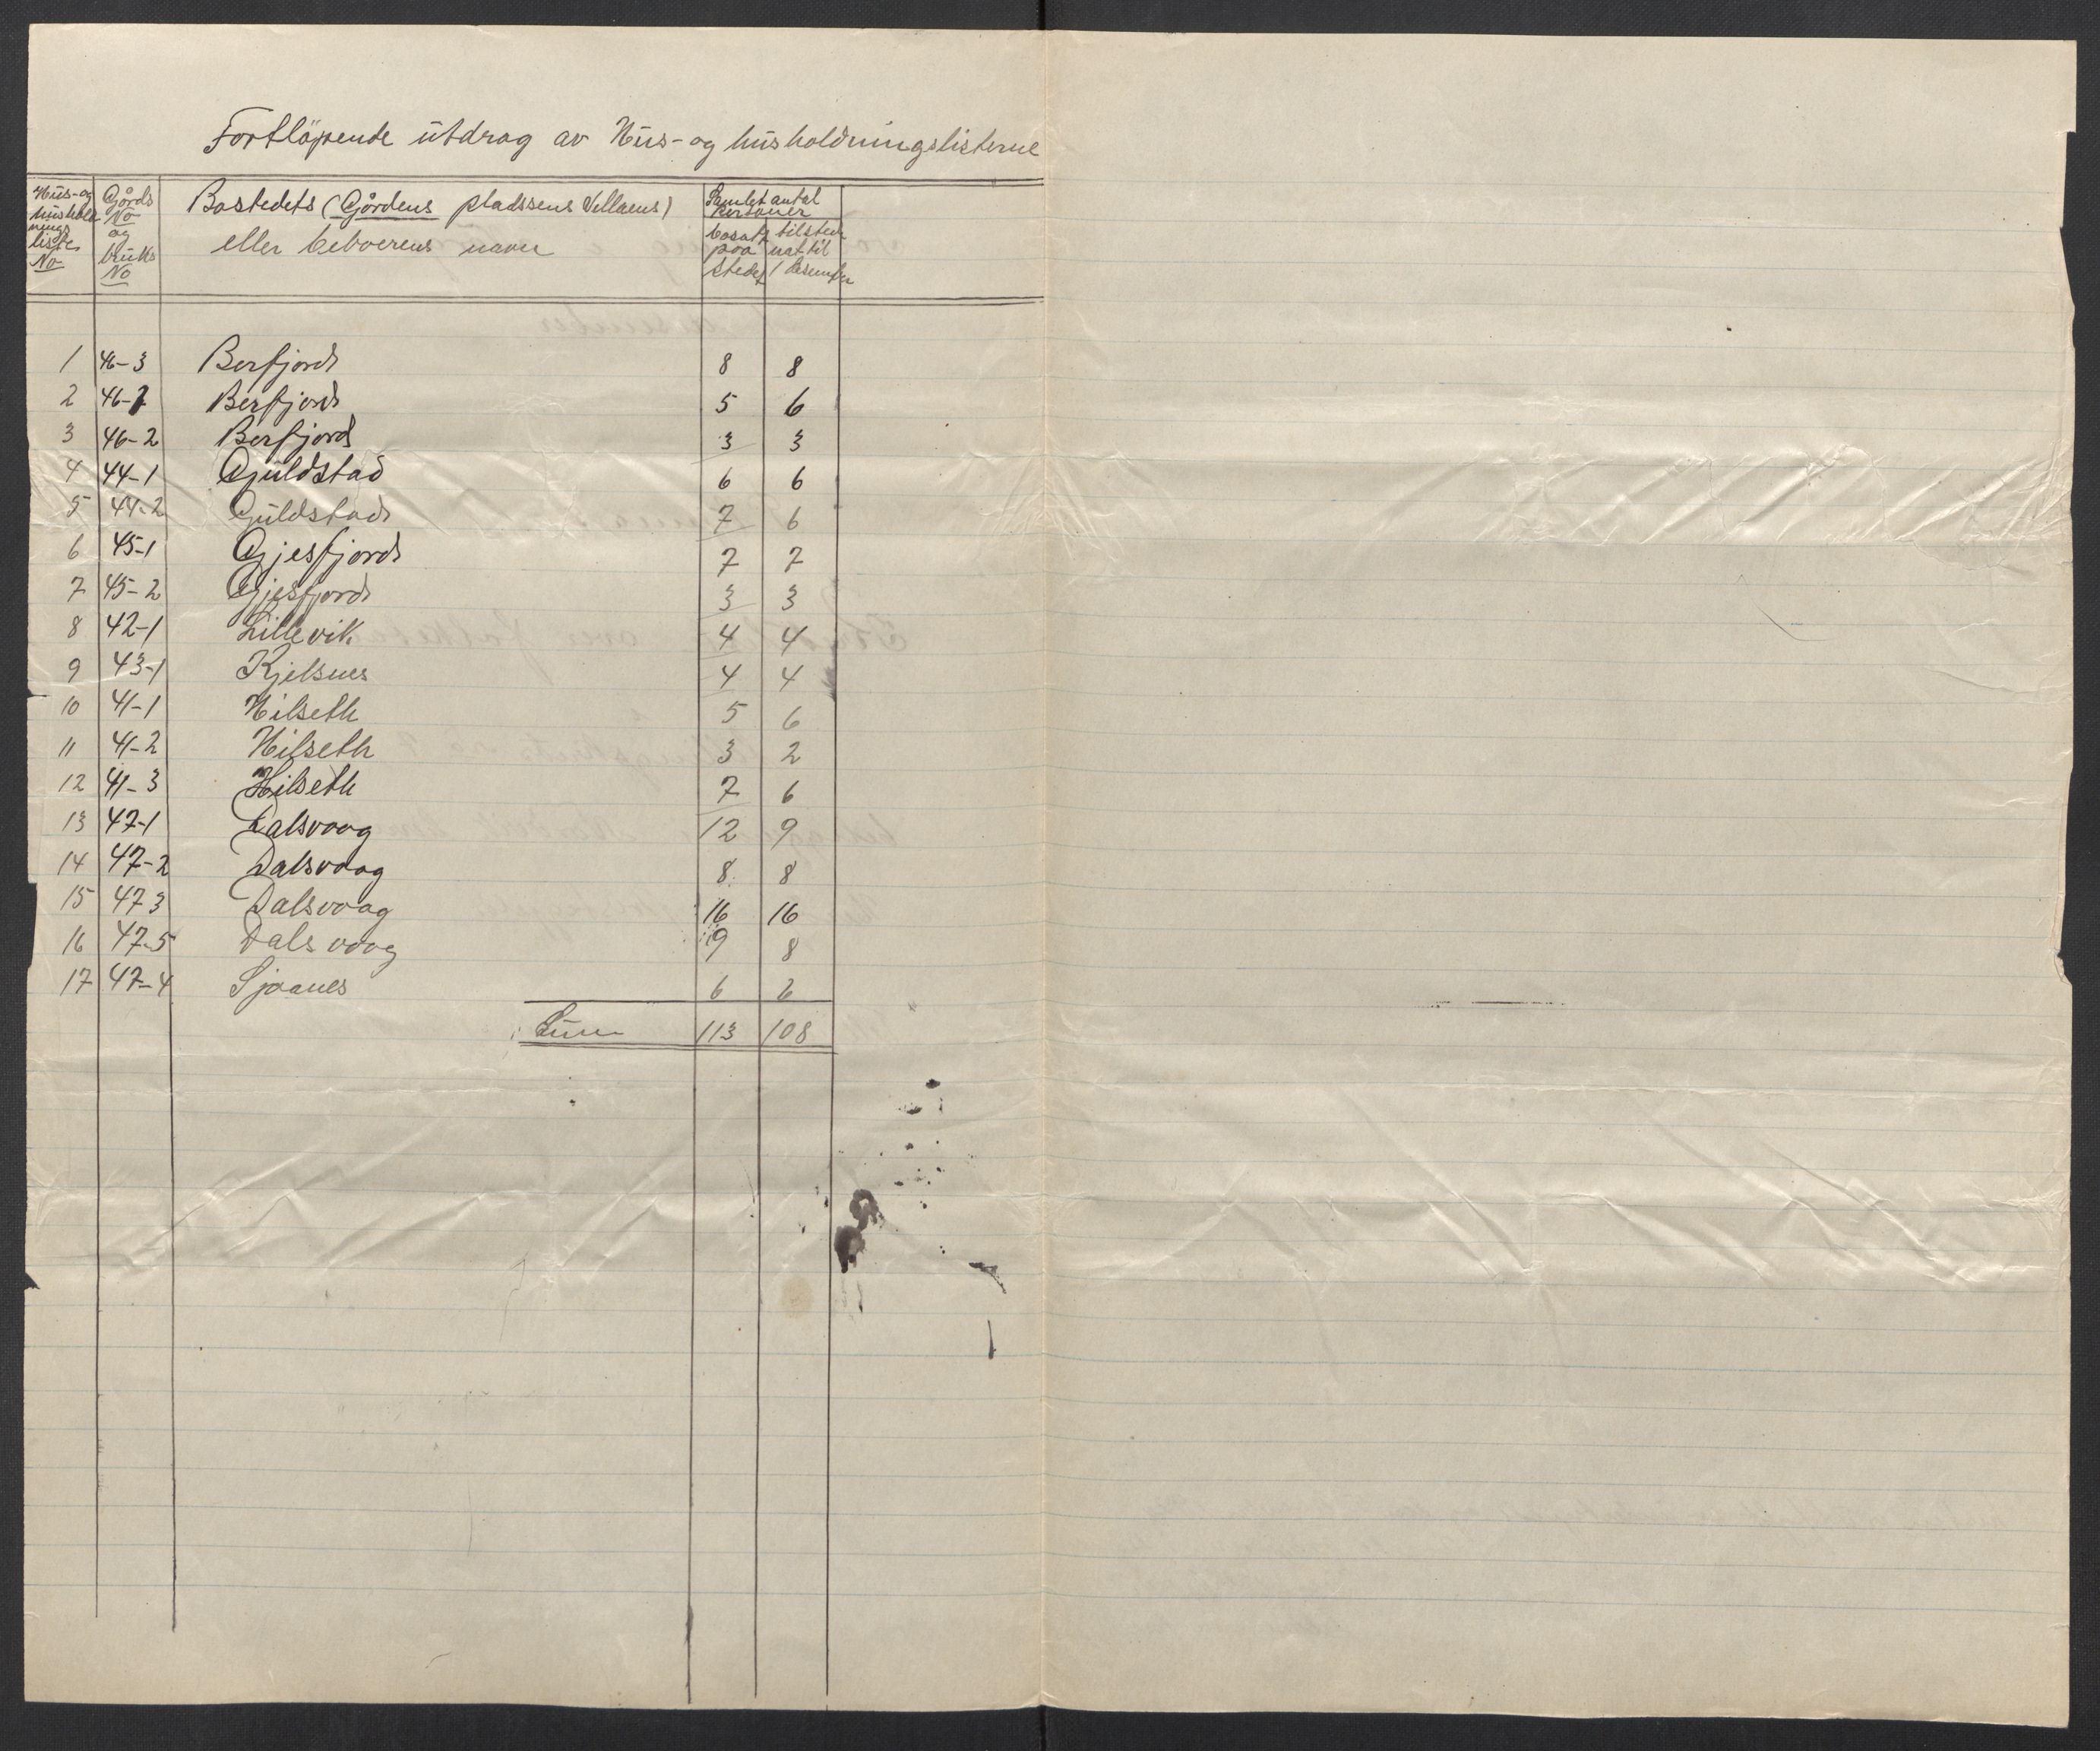 Fortløpende utdrag av Hus- og husholdningslisterne
Hus- og hushold nings liste No
Gårds No og bruks No
Bostedets (Gårdens pladssens Villaens)
eller beboerens navn
Samlet antal personer
bosat paa stedet
tilstede nat til 1 desember
1 46-3 Berfjord 8 8
2 46-1 Berfjord 5 6
3 46-2 Berfjord 3 3
4 44-1 Guldstad 6 6
5 44-2 Guldstad 7 6
6 45-1 Gjesfjord 7 7
7 45-2 Gjesfjord 3 3
8 42-1 Lillevik 4 4
9 43-1 Kjelsnes 4 4
10 41-1 Hilseth 5 6
11 41-2 Hilseth 3 2
12 41-3 Hilseth 7 6
13 47-1 Dalsvaag 12 9
14 47-2 Dalsvaag 8 8
15 47 3 Dalsvaag 16 16
16 47-5 Dalsvaag 9 8
17 47-4 Sjaanes 6 6
Sum 113 108